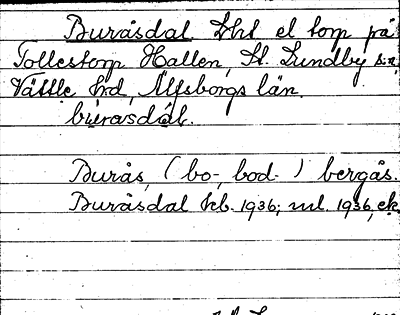 Buråsdal Lht el torp på
Tollestorp Hallen, St. Lundby s:n
Vättle hrd, Älfsborgs län.
burasdal.
Burås, (bo-, bod-) bergås.
Buråsdal kb. 1936; ml. 1936, ek.